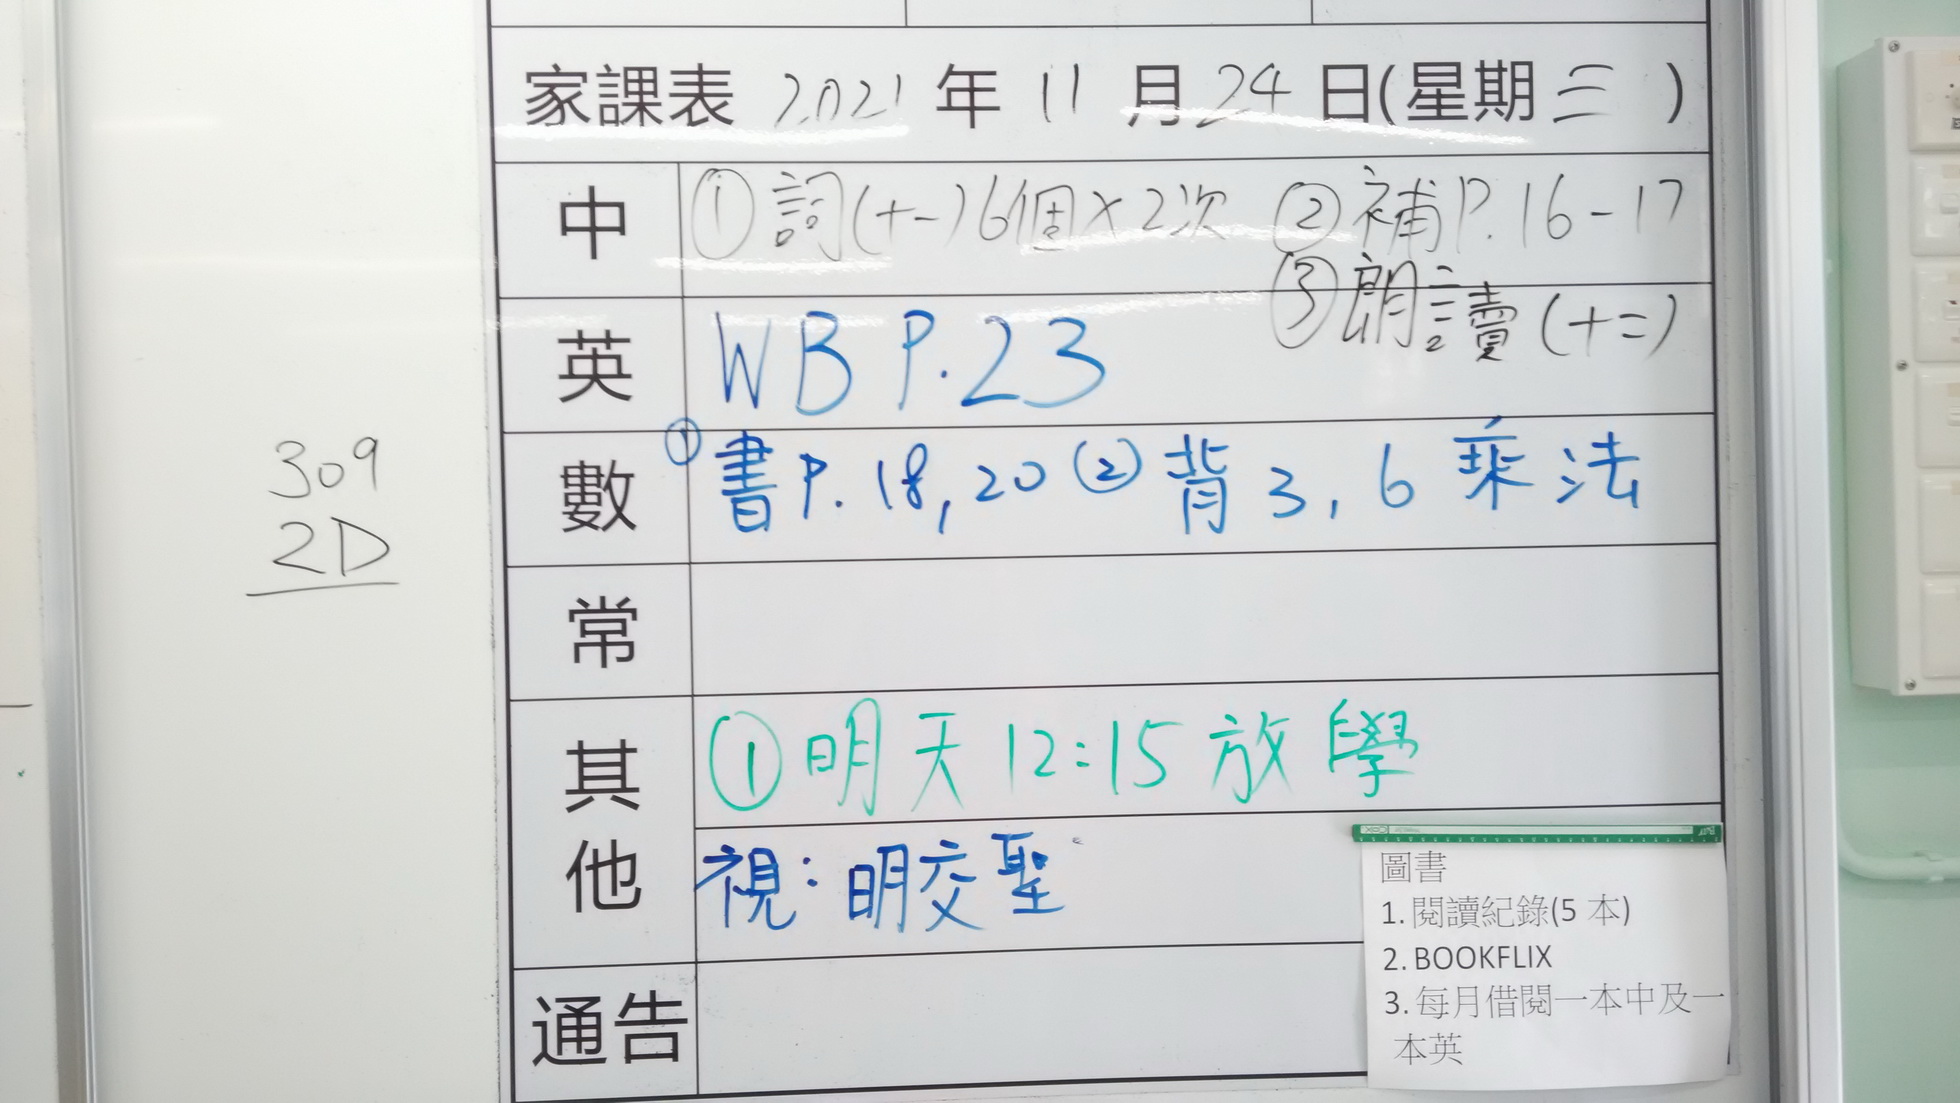 家課表 2021 年 11 月 24 日(星期 三 )
中 ① 詞(十一)6個×2次 ② 補P.16-17
③ 朗讀(十二)
英 WB P.23
數 ① 書P.18,20 ② 背3,6乘法
309
2D
常
其他 ① 明天12:15放學
視:明交聖
圖書
1. 閱讀紀錄(5 本)
2. BOOKFLIX
3. 每月借閱一本中及一
本英
通告